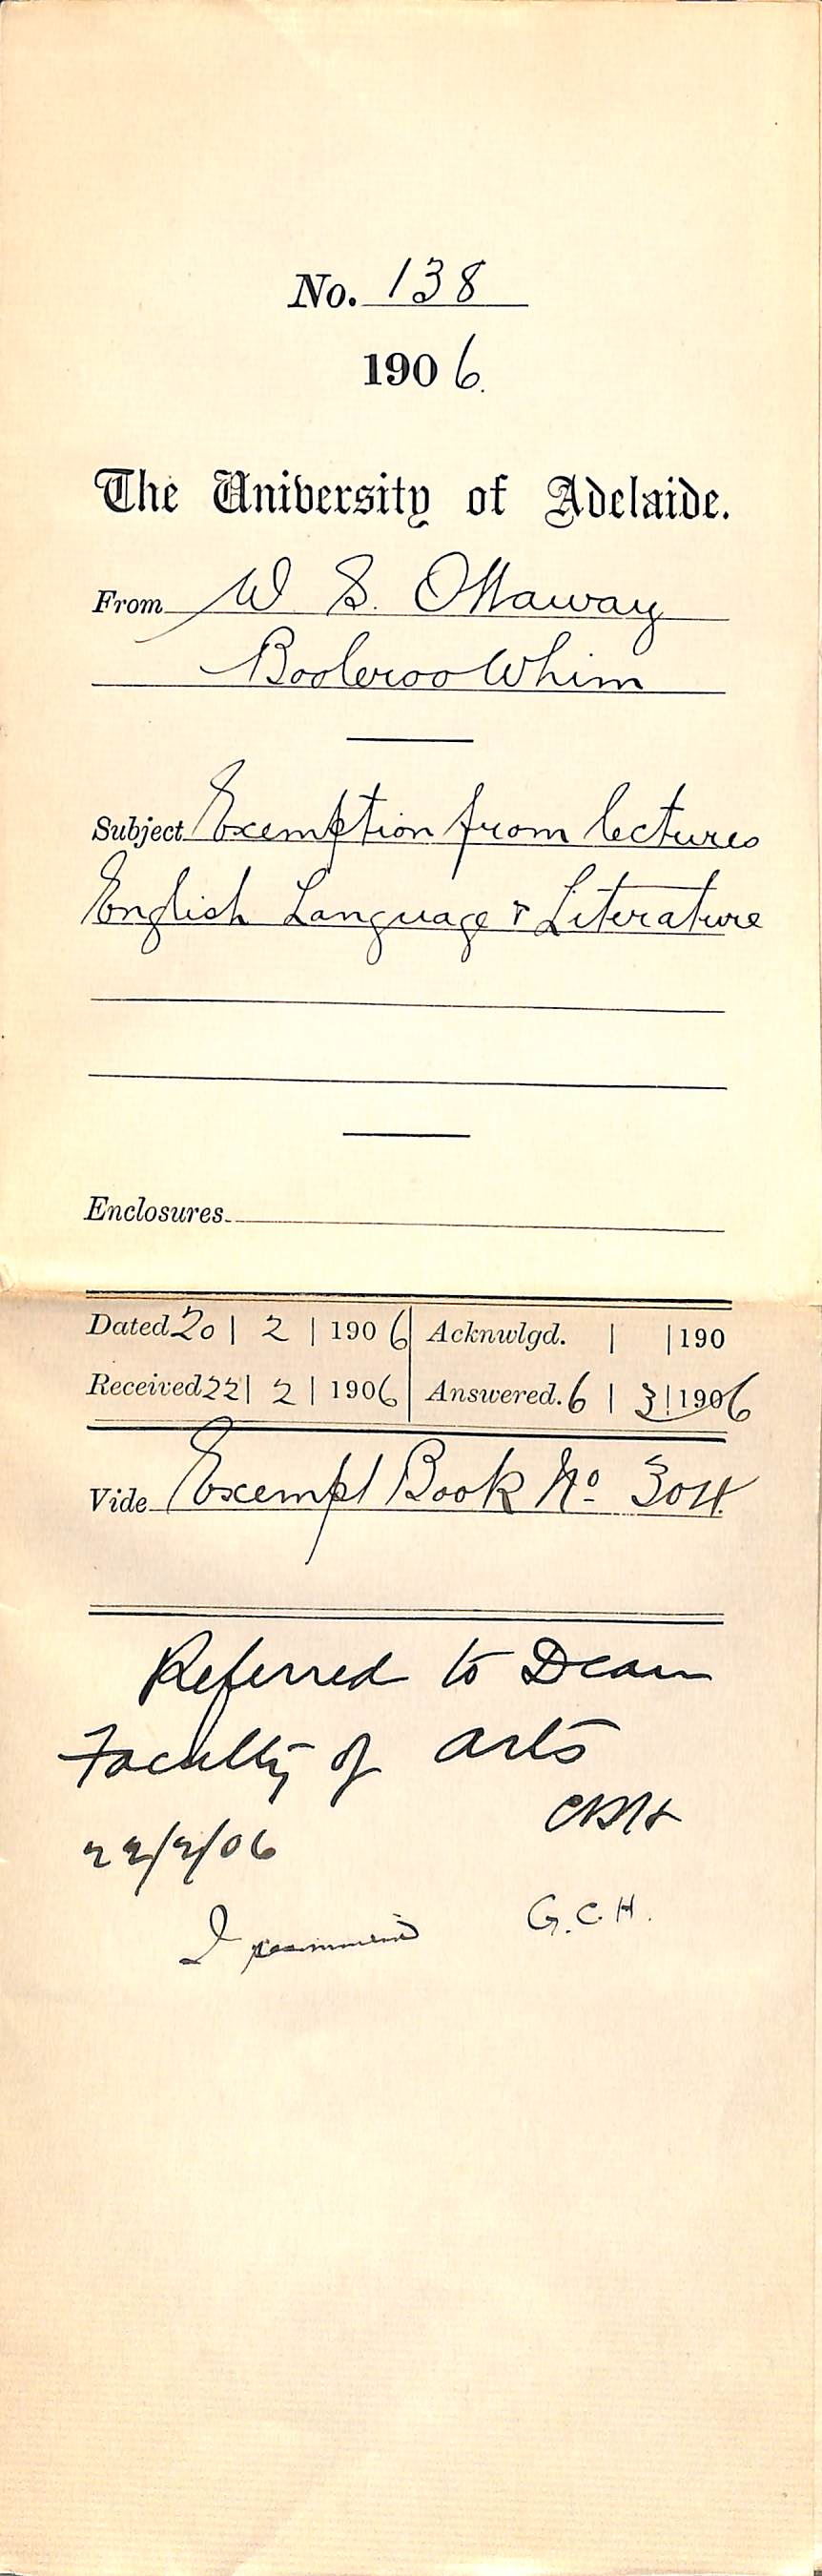 No. 138
1906.
The University of Adelaide.
From W S. Ottaway
Booleroo Whim
Subject Exemption from lectures
English Language & Literature
Enclosures
Dated 20 | 2 | 1906 Acknwlgd. | | 190
Received 22 | 2 | 1906 Answered. 6 | 3 | 1906
Vide Exempt Book No 304.
Referred to Dean
Faculty of Arts
22/2/06
I recommend G.C.H.